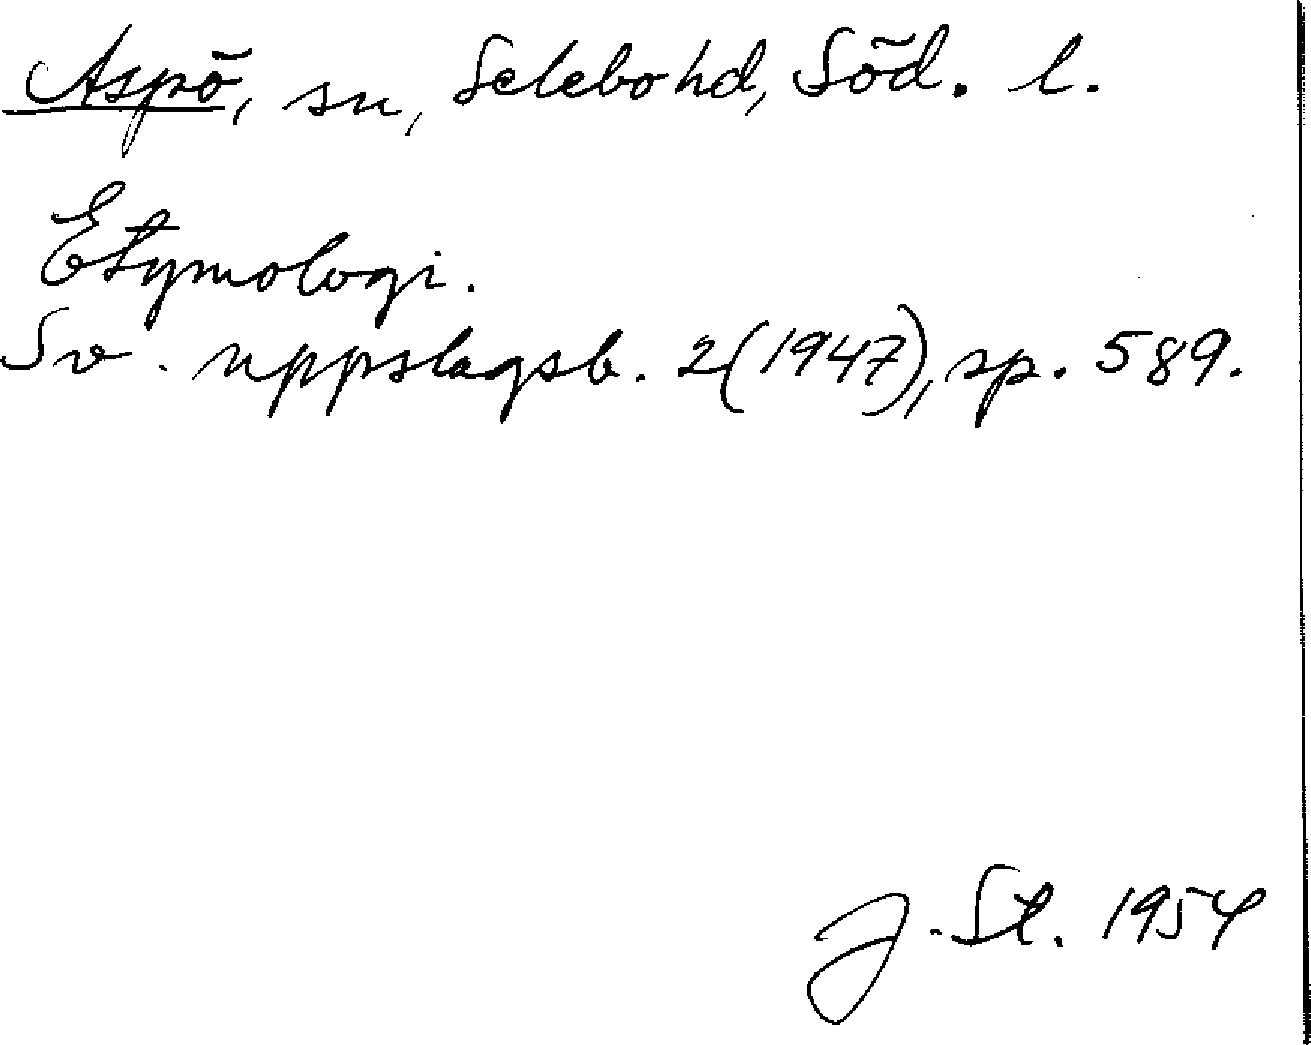 Aspö, sn, Selebo hd, Söd. l.
Etymologi.
Sv. uppslagsb. 2 (1947), sp. 589.
J. St. 1954